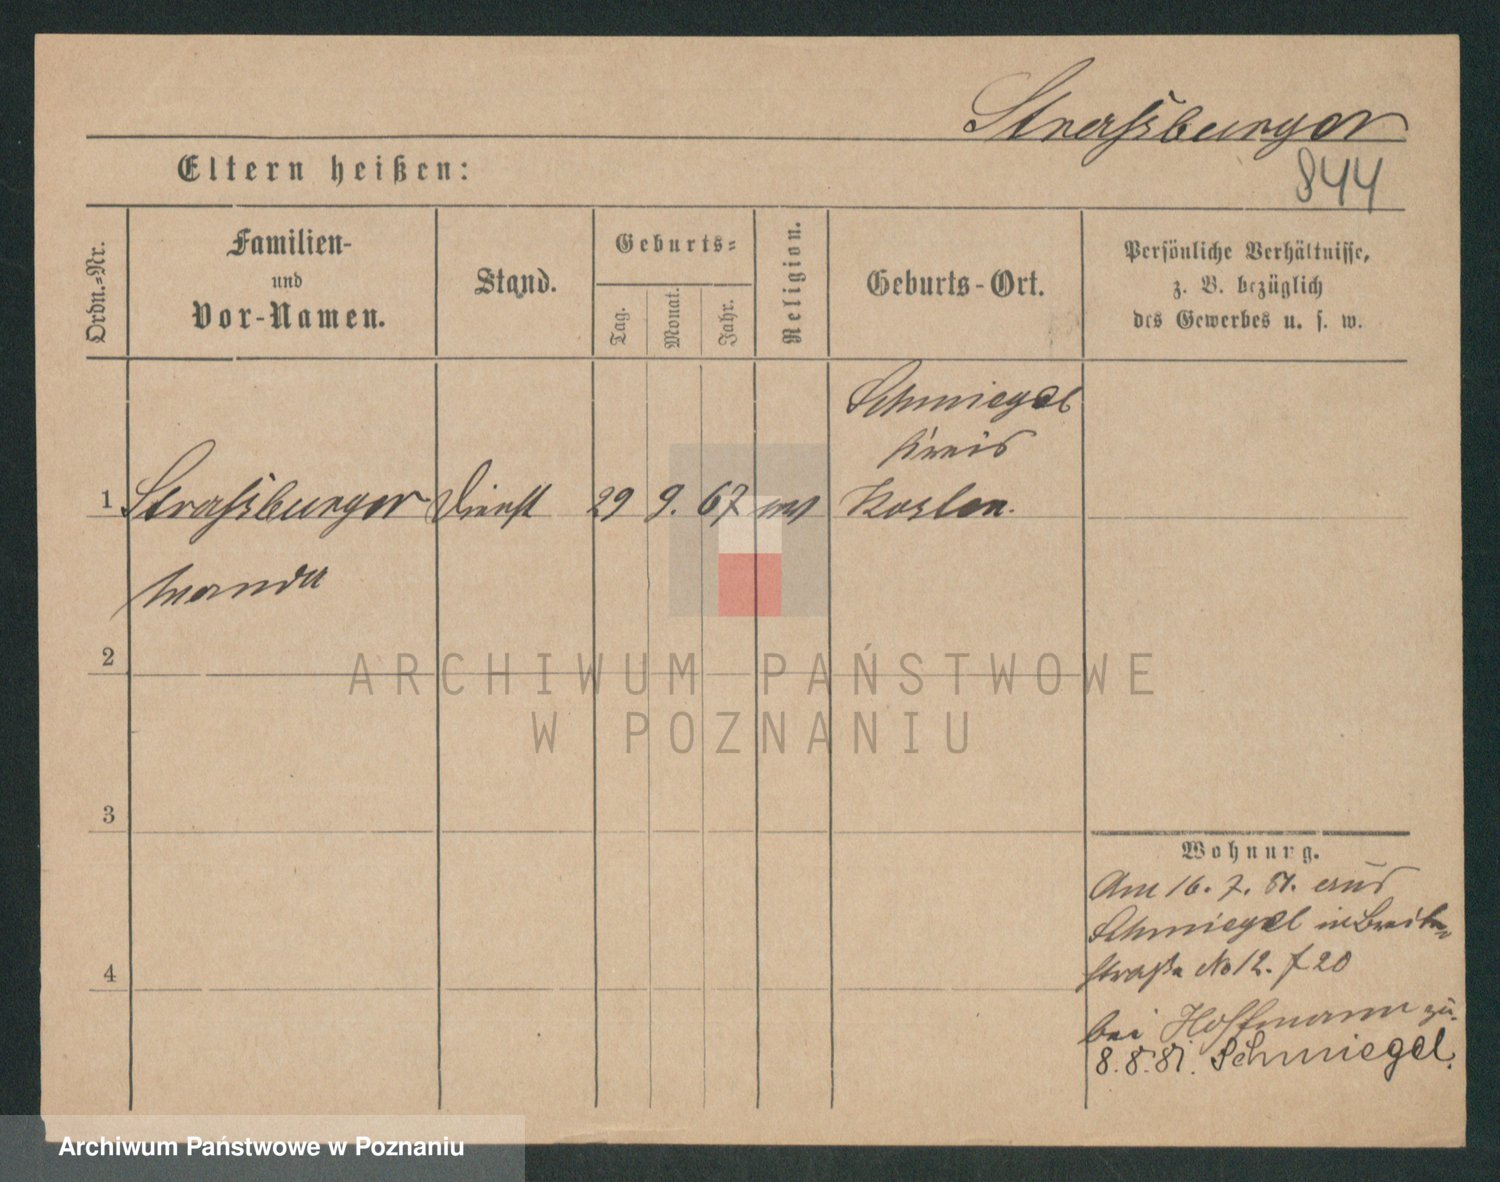 Strassburger
Eltern heißen:
844
Ordn.-Nr.
Familien-
und
Vor-Namen.
Stand.
Geburts-
Tag.
Monat.
Jahr.
Religion.
Geburts-Ort.
Persönliche Verhältnisse,
z. B. bezüglich
des Gewerbes u. s. w.
Schmiegel
Kreis
1 Strassburger Dienst 29 9. 67 Kosten.
Wanda
2
ARCHIWUM PAŃSTWOWE
W POZNANIU
3
Wohnung.
Am 16. 7. 81. aus
Schmiegel in Breite
straße No 12. f 20
4
bei Hoffmann zu.
8.8.81. Schmiegel.
Archiwum Państwowe w Poznaniu